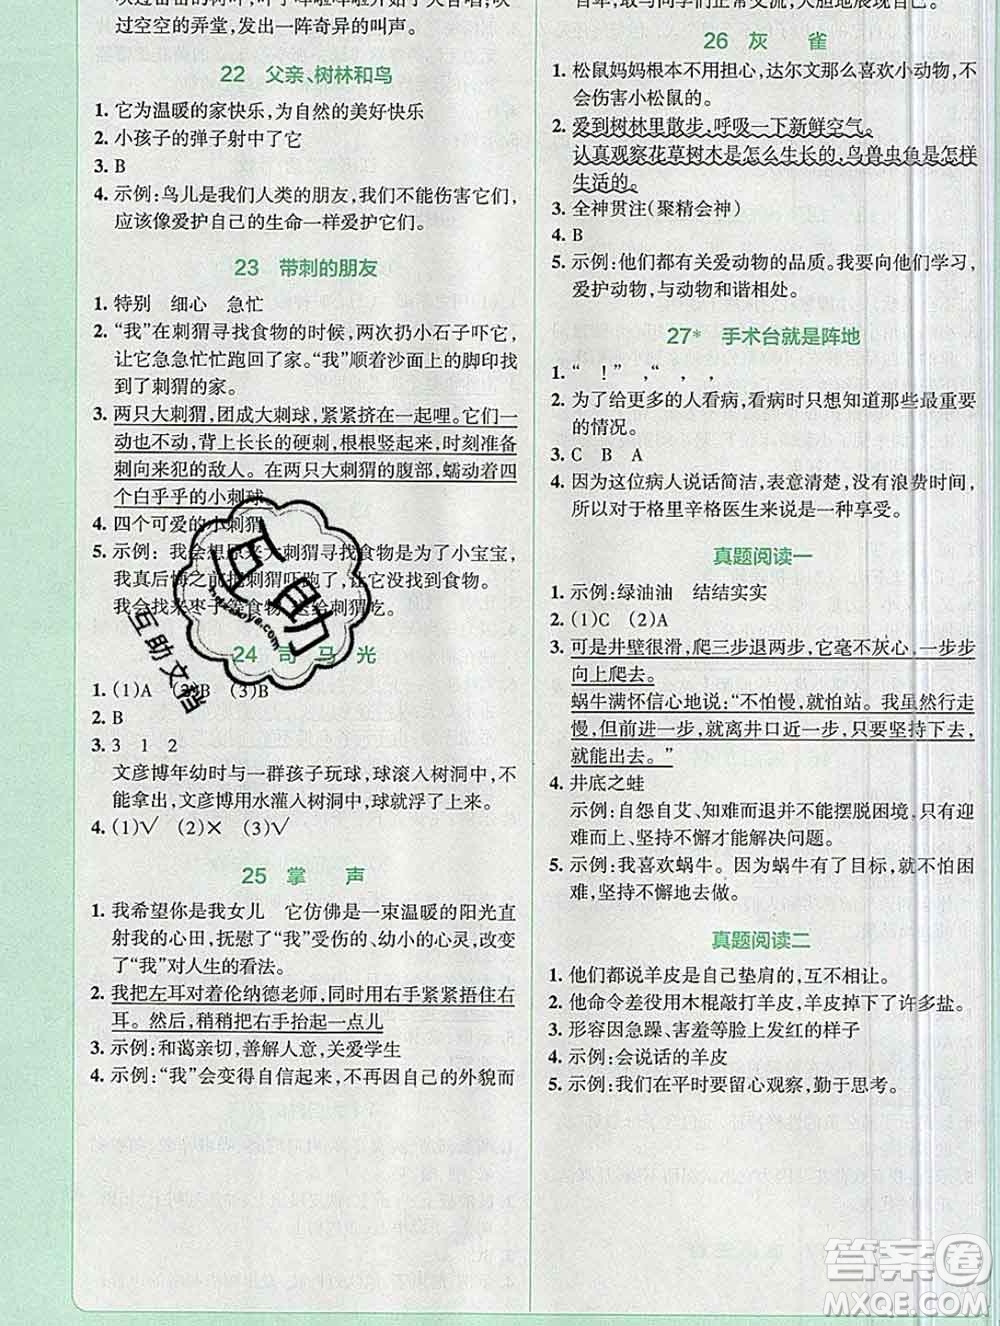 过空空的弄堂，发出一阵奇异的叫声。
22 父亲、树林和鸟
1. 它为温暖的家快乐，为自然的美好快乐
2. 小孩子的弹子射中了它
3. B
4. 示例：鸟儿是我们人类的朋友，我们不能伤害它们，
应该像爱护自己的生命一样爱护它们。
23 带刺的朋友
1. 特别 细心 急忙
2. “我”在刺猬寻找食物的时候，两次扔小石子吓它，
让它急急忙忙跑回了家。“我”顺着沙面上的脚印找
到了刺猬的家。
3. 两只大刺猬，团成大刺球，紧紧挤在一起哩。它们一
动也不动，背上长长的硬刺，根根竖起来，时刻准备
刺向来犯的敌人。在两只大刺猬的腹部，蠕动着四
个白乎乎的小刺球
4. 四个可爱的小刺猬
5. 示例：我会想原来大刺猬寻找食物是为了小宝宝，
我真后悔之前把刺猬吓跑了，让它没有找到食物。
我会找来枣子等食物，送给刺猬吃。
24 司马光
1. (1)A (2)B (3)B
2. B
3. 3 1 2
文彦博年幼时与一群孩子玩球，球滚入树洞中，不
能拿出，文彦博用水灌入树洞中，球就浮了上来。
4. (1)√ (2)× (3)√
25 掌 声
1. 我希望你是我女儿 它仿佛是一束温暖的阳光直
射我的心田，抚慰了“我”受伤的、幼小的心灵，改变
了“我”对人生的看法。
2. 我把左耳对着伦纳德老师，同时用右手紧紧捂住右
耳。然后，稍稍把右手抬起一点儿
3. 示例：和蔼亲切，善解人意，关爱学生
4. 示例：“我”会变得自信起来，不再因自己的外貌而
26 灰 雀
1. 松鼠妈妈根本不用担心，达尔文那么喜欢小动物，不
会伤害小松鼠的。
2. 爱到树林里散步，呼吸一下新鲜空气。
认真观察花草树木是怎么生长的，鸟兽虫鱼是怎样
生活的。
3. 全神贯注（聚精会神）
4. B
5. 示例：他们都有关爱动物的品质。我要向他们学习，
爱护动物，与动物和谐相处。
27* 手术台就是阵地
1. “ ！” ，“ ， ，
2. 为了给更多的人看病，看病时只想知道那些最重要
的情况。
3. C B A
4. 因为这位病人说话简洁，表意清楚，没有浪费时间，
所以对于格里辛格医生来说是一种享受。
真题阅读一
1. 示例：绿油油 结结实实
2. (1)C (2)A
3. 可是井壁很滑，爬三步退两步，它毫不灰心，一步步
向上爬去。
蜗牛满怀信心地说：“不怕慢，就怕站。我虽然行走
慢，但前进一步，就离开井口近一步，只要坚持下去，
就能出去。”
4. 井底之蛙
示例：自怨自艾、知难而退并不能摆脱困境，只有迎
难而上、坚持不懈才能解决问题。
5. 示例：我喜欢蜗牛。因为蜗牛有了目标，就不怕困
难，坚持不懈地去做。
真题阅读二
1. 他们都说羊皮是自己垫肩的，互不相让。
2. 他命令差役用木棍敲打羊皮，羊皮掉下了许多盐。
3. 形容因急躁、害羞等脸上发红的样子
4. 示例：会说话的羊皮
5. 示例：我们在平时要留心观察，勤于思考。
互助
互助文档
答案圈
MXQE.COM